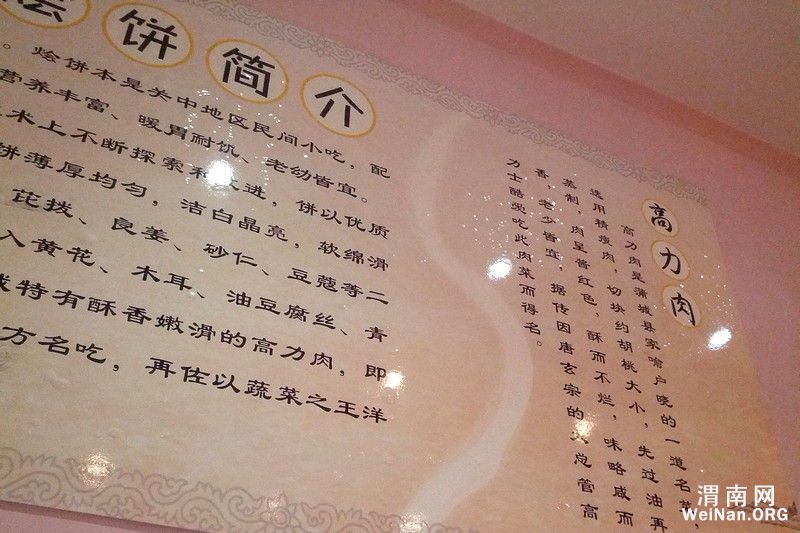 烩饼简介
。烩饼本是关中地区民间小吃，配
营养丰富、暖胃耐饥、老幼皆宜。
术上不断探索和改进，饼以优质
饼薄厚均匀，洁白晶亮，软绵滑
芘拨、良姜、砂仁、豆蔻等二
入黄花、木耳、油豆腐丝、青
特有酥香嫩滑的高力肉，即
方名吃，再佐以蔬菜之王洋
高力肉
高力肉是蒲城县家喻户晓的一道名菜，
选用精瘦肉，切块约胡桃大小，先过油再
蒸制，肉呈酱红色，酥而不烂，味略咸而
香，老少皆宜，据传因唐玄宗的大总管高
力士酷爱吃此肉菜而得名。
渭南网
WeiNan.ORG